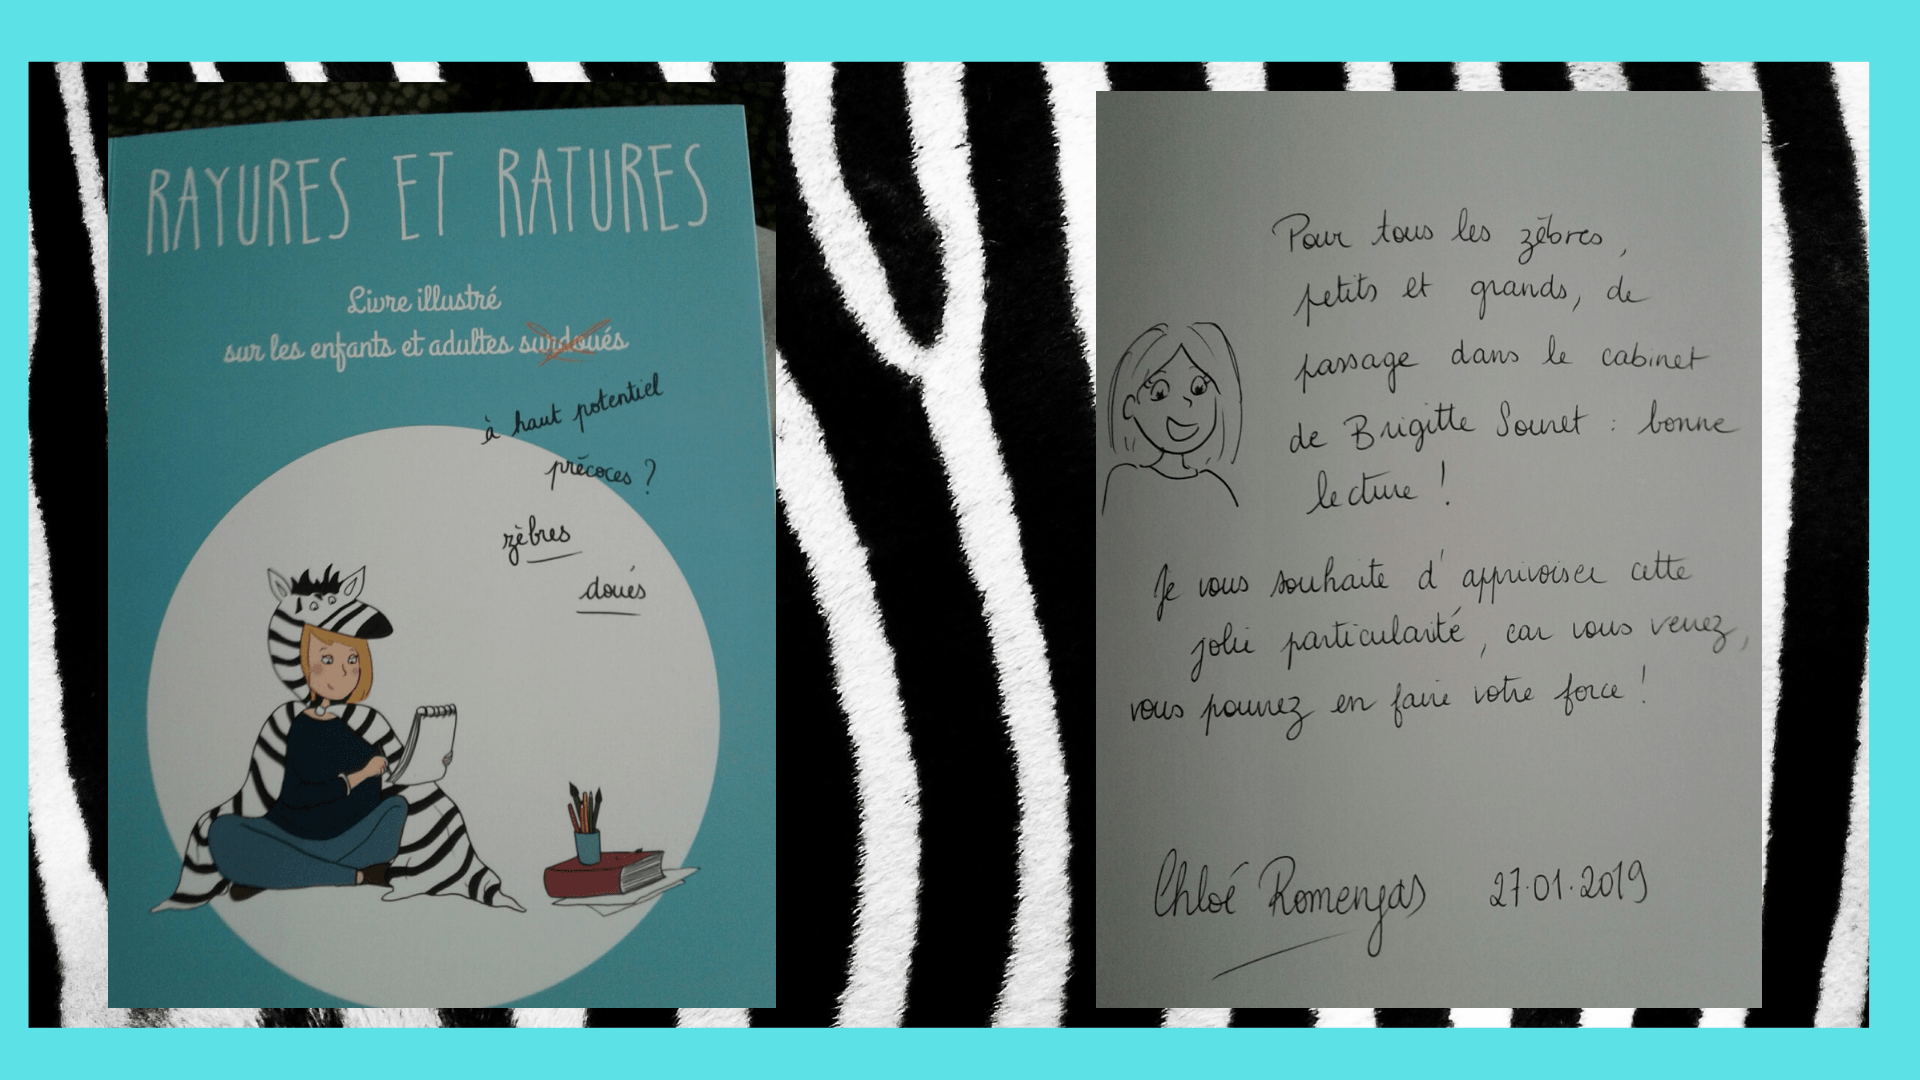 RAYURES ET RATURES
Livre illustré
sur les enfants et adultes surdoués
à haut potentiel
précoces ?
zèbres
doués
Pour tous les zèbres,
petits et grands, de
passage dans le cabinet
de Brigitte Sounet : bonne
lecture !
Je vous souhaite d'apprivoiser cette
jolie particularité, car vous verrez,
vous pouvez en faire votre force !
Chloé Romengas 27.01.2019